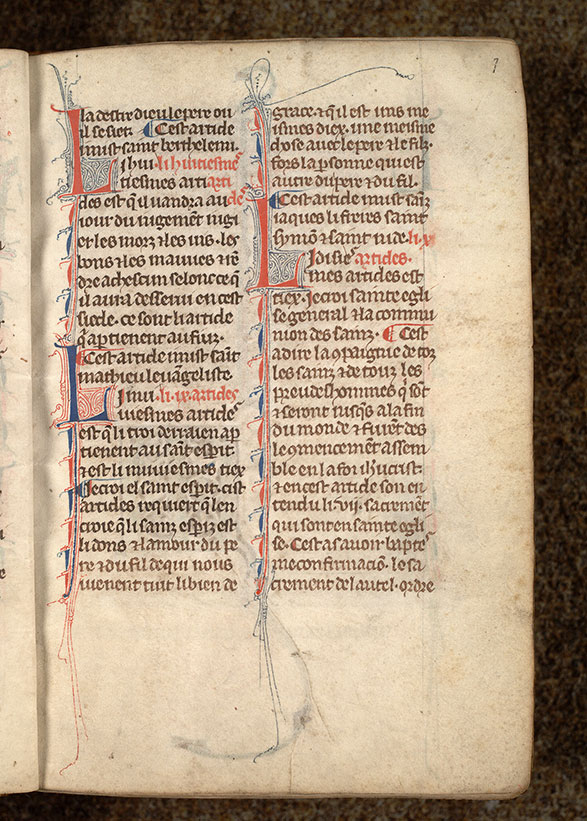 la destre dieu le pere ou
il se siet. Cest article
mist saint berthelemi.
Li huitiesme
tiesmes arti arti
cles est quil uandra au cle
iour du iugement iugi
er les morz & les uis. les
bons & les mauues & rē
dre a chescun selonc ce q̄
il aura desserui en cest
siecle. ce sont li article
q̄ apartienent au fiuz.
Cest article mist saīt
mathieu leuāgeliste.
Li nui. li .ix. articles
uiesmes article
est que li troi derraien ap
tienent au saīt esperit.
& est li nuiuiesmes tiex
Je croi el saint espit. cist
articles requiert q̄ len
croie q̄ li sainz espiz est
li dons & lamour du pe
re & du fil de qui nous
uienent tuit li bien de
grace. & q̄ il est uns me
ismes diex. une meisme
chose auec le pere & le filz.
fors la psonne qui est
autre du pere & du fil.
Cest article mist saīz
iaques li freres saint
symon & saint iude. li .x.
Li disie articles.
mes articles est
tiex. Je croi sainte egli
se general & la commu
nion des sainz. Cest
a dire la 9paignie de toz
les sainz & de touz les
preudeshommes q̄ sōt
& seront iusq̄s a la fin
du monde & furēt des
le 9mencemēt assem
ble en la foi ihu crist.
& en cest article son en
tendu li .vii. sacremēt
qui sont en sainte egli
se. Cest a sauoir bapte
me confirmaciō. le sa
crement de lautel. ordre